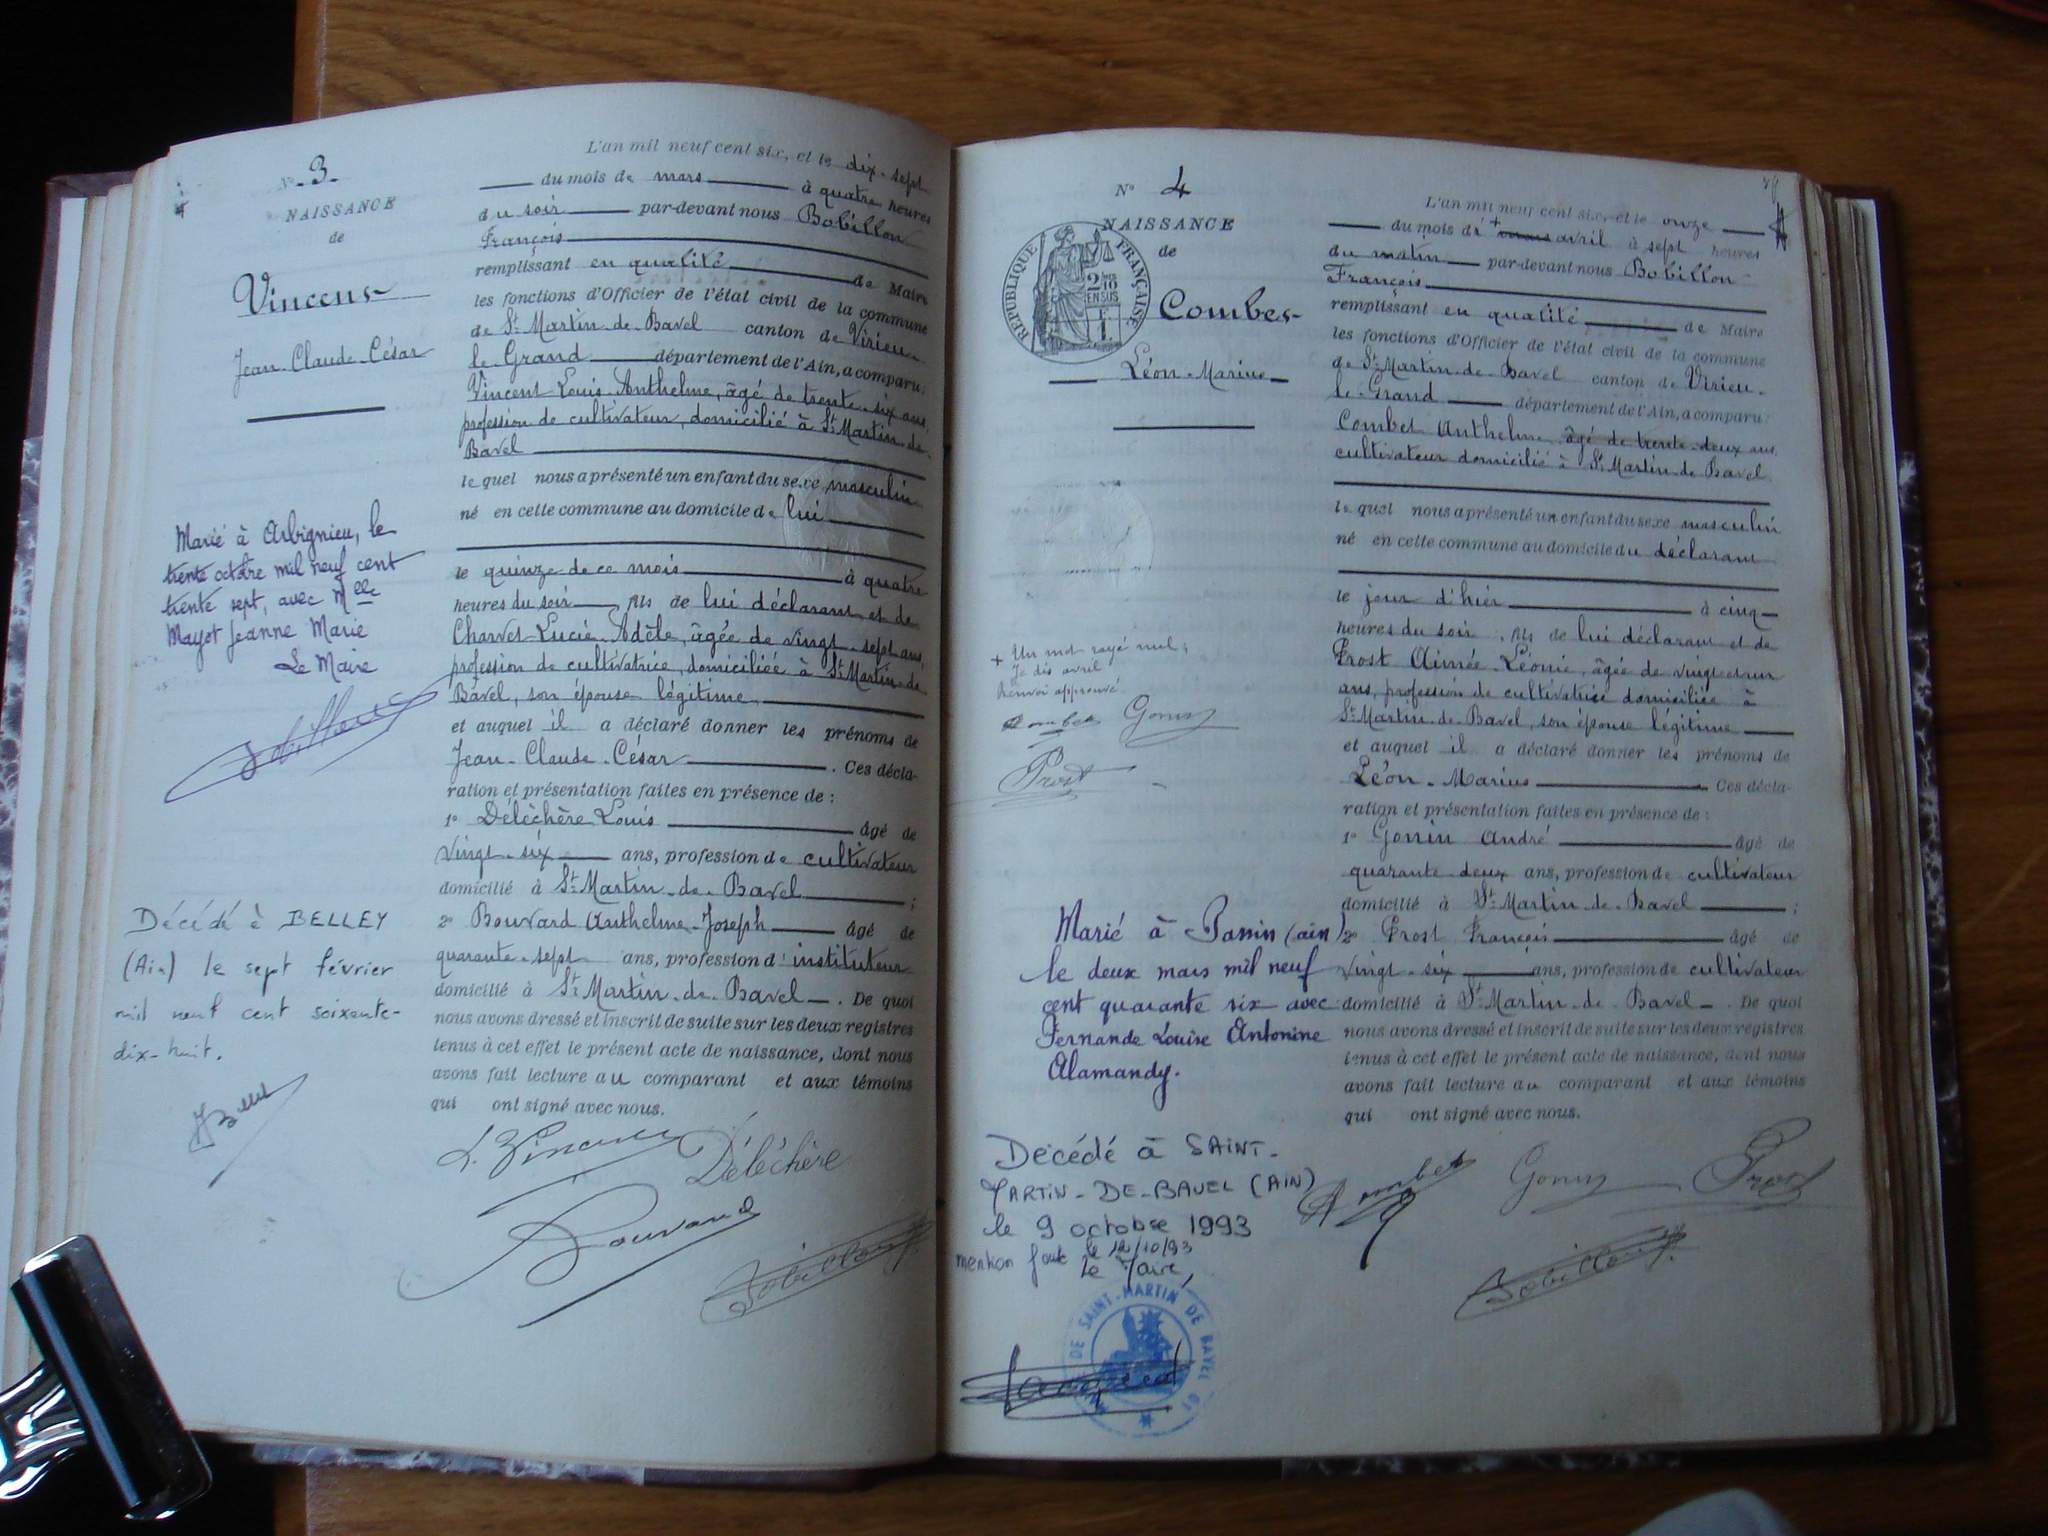 N° 3.
NAISSANCE
de
Vincent
Jean-Claude-César
Marié à Arbignieu, le
trente octobre mil neuf cent
trente sept, avec Melle
Mayet Jeanne Marie
Le Maire
Décédé à BELLEY
(Ain) le sept février
mil neuf cent soixante-
dix-huit.
L'an mil neuf cent six, et le dix-sept
du mois de mars à quatre heures
du soir par-devant nous Bobillon
François
remplissant en qualité de Maire
les fonctions d'Officier de l'état civil de la commune
de St Martin-de-Bavel canton de Virieu-
le-Grand département de l'Ain, a comparu:
Vincent Louis Anthelme, âgé de trente-six ans,
profession de cultivateur, domicilié à St Martin-de-
Bavel
lequel nous a présenté un enfant du sexe masculin
né en cette commune au domicile de lui
le quinze de ce mois à quatre
heures du soir, fils de lui déclarant et de
Charvet Lucie-Adèle, âgée de vingt-sept ans,
profession de cultivatrice, domiciliée à St Martin-de-
Bavel, son épouse légitime,
et auquel il a déclaré donner les prénoms de
Jean-Claude-César. Ces décla-
ration et présentation faites en présence de :
1° Délèchère Louis âgé de
vingt-six ans, profession de cultivateur
domicilié à St Martin-de-Bavel ;
2° Bouvard Anthelme-Joseph âgé de
quarante-sept ans, profession d'instituteur
domicilié à St Martin-de-Bavel. De quoi
nous avons dressé et inscrit de suite sur les deux registres
tenus à cet effet le présent acte de naissance, dont nous
avons fait lecture au comparant et aux témoins
qui ont signé avec nous.
L. Vincent
Déléchère
Bouvard
Bobillon f.
N° 4
NAISSANCE
de
RÉPUBLIQUE FRANÇAISE
2/10
EN SUS
Combet
Léon-Marius
+ Un mot rayé nul;
Je dis avril
Renvoi approuvé
Combet Gonin
Prost
Marié à Passin (ain)
le deux mars mil neuf
cent quarante six avec
Fernande Louise Antonine
Alamandy.
Décédé à SAINT-
MARTIN-DE-BAVEL (AIN)
le 9 octobre 1993
mention faite le 12/10/93
Le Maire,
MAIRIE DE SAINT-MARTIN DE BAVEL 01
L'an mil neuf cent six, et le onze
du mois de + mars avril à sept heures
du matin par-devant nous Bobillon
François
remplissant en qualité de Maire
les fonctions d'Officier de l'état civil de la commune
de St Martin-de-Bavel canton de Virieu-
le-Grand département de l'Ain, a comparu:
Combet Anthelme âgé de trente-deux ans,
cultivateur domicilié à St Martin-de-Bavel
lequel nous a présenté un enfant du sexe masculin
né en cette commune au domicile du déclarant
le jour d'hier à cinq
heures du soir, fils de lui déclarant et de
Prost Aimée-Léonie, âgée de vingt et un
ans, profession de cultivatrice domiciliée à
St Martin-de-Bavel, son épouse légitime
et auquel il a déclaré donner les prénoms de
Léon-Marius. Ces décla-
ration et présentation faites en présence de :
1° Gonin André âgé de
quarante-deux ans, profession de cultivateur
domicilié à St Martin-de-Bavel ;
2° Prost François âgé de
vingt-six ans, profession de cultivateur
domicilié à St Martin-de-Bavel. De quoi
nous avons dressé et inscrit de suite sur les deux registres
tenus à cet effet le présent acte de naissance, dont nous
avons fait lecture au comparant et aux témoins
qui ont signé avec nous.
Combet Gonin Prost
Bobillon f.